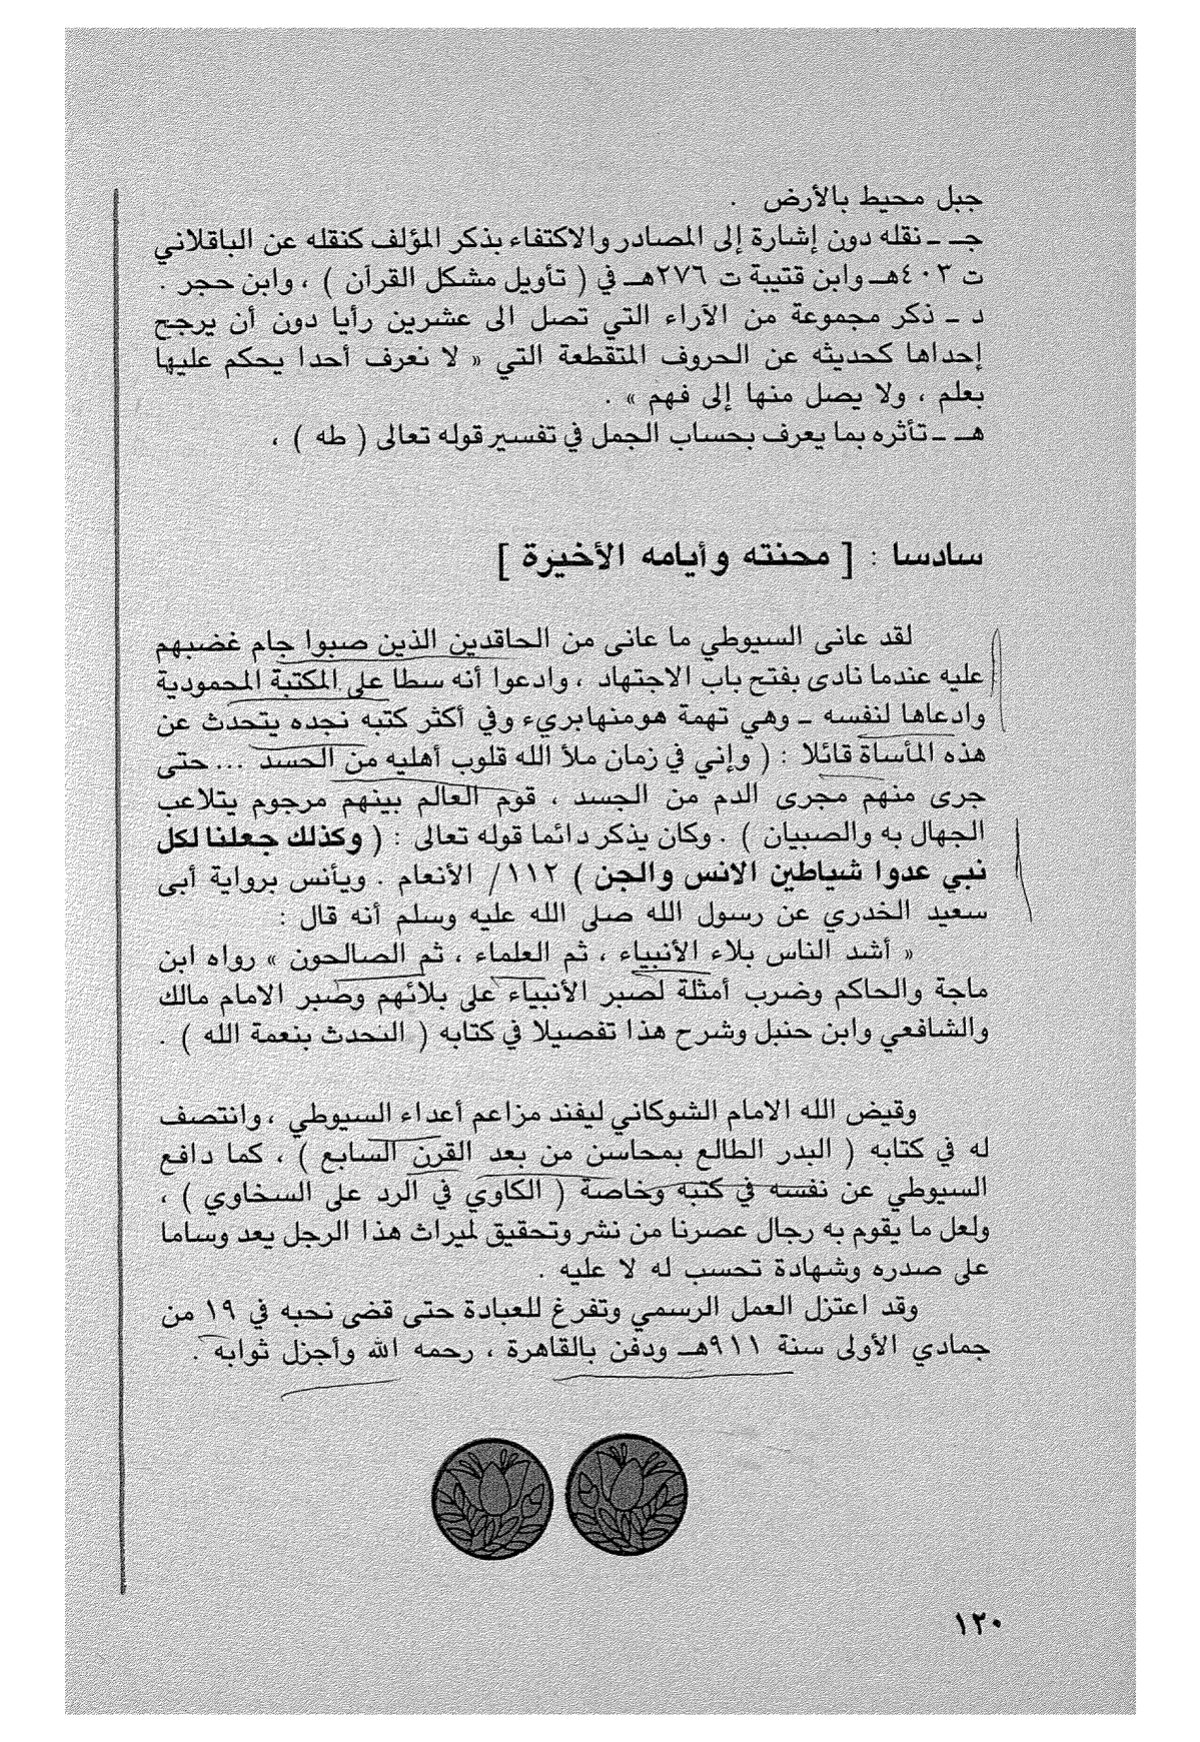 جبل محيط بالأرض .
جـ ـ نقله دون إشارة إلى المصادر والاكتفاء بذكر المؤلف كنقله عن الباقلاني
ت ٤٠٣هـ وابن قتيبة ت ٢٧٦هـ في ( تأويل مشكل القرآن ) ، وابن حجر .
د ـ ذكر مجموعة من الآراء التي تصل الى عشرين رأيا دون أن يرجح
إحداها كحديثه عن الحروف المتقطعة التي « لا نعرف أحدا يحكم عليها
بعلم ، ولا يصل منها إلى فهم » .
هـ ـ تأثره بما يعرف بحساب الجمل في تفسير قوله تعالى ( طه ) ،
سادسا : [ محنته وأيامه الأخيرة ]
لقد عانى السيوطي ما عانى من الحاقدين الذين صبوا جام غضبهم
عليه عندما نادى بفتح باب الاجتهاد ، وادعوا أنه سطا على المكتبة المحمودية
وادعاها لنفسه ـ وهي تهمة هو منها بريء وفي أكثر كتبه نجده يتحدث عن
هذه المأساة قائلا : ( وإني في زمان ملأ الله قلوب أهليه من الحسد ... حتى
جرى منهم مجرى الدم من الجسد ، قوم العالم بينهم مرجوم يتلاعب
الجهال به والصبيان ) . وكان يذكر دائما قوله تعالى : ( وكذلك جعلنا لكل
نبي عدوا شياطين الانس والجن ) ١١٢/ الأنعام . ويأنس برواية أبى
سعيد الخدري عن رسول الله صلى الله عليه وسلم أنه قال :
« أشد الناس بلاء الأنبياء ، ثم العلماء ، ثم الصالحون » رواه ابن
ماجة والحاكم وضرب أمثلة لصبر الأنبياء على بلائهم وصبر الامام مالك
والشافعي وابن حنبل وشرح هذا تفصيلا في كتابه ( التحدث بنعمة الله ) .
وقيض الله الامام الشوكاني ليفند مزاعم أعداء السيوطي ، وانتصف
له في كتابه ( البدر الطالع بمحاسن من بعد القرن السابع ) ، كما دافع
السيوطي عن نفسه في كتبه وخاصة ( الكاوي في الرد على السخاوي ) ،
ولعل ما يقوم به رجال عصرنا من نشر وتحقيق لميراث هذا الرجل يعد وساما
على صدره وشهادة تحسب له لا عليه .
وقد اعتزل العمل الرسمي وتفرغ للعبادة حتى قضى نحبه في ١٩ من
جمادي الأولى سنة ٩١١هـ ودفن بالقاهرة ، رحمه الله وأجزل ثوابه .
١٢٠